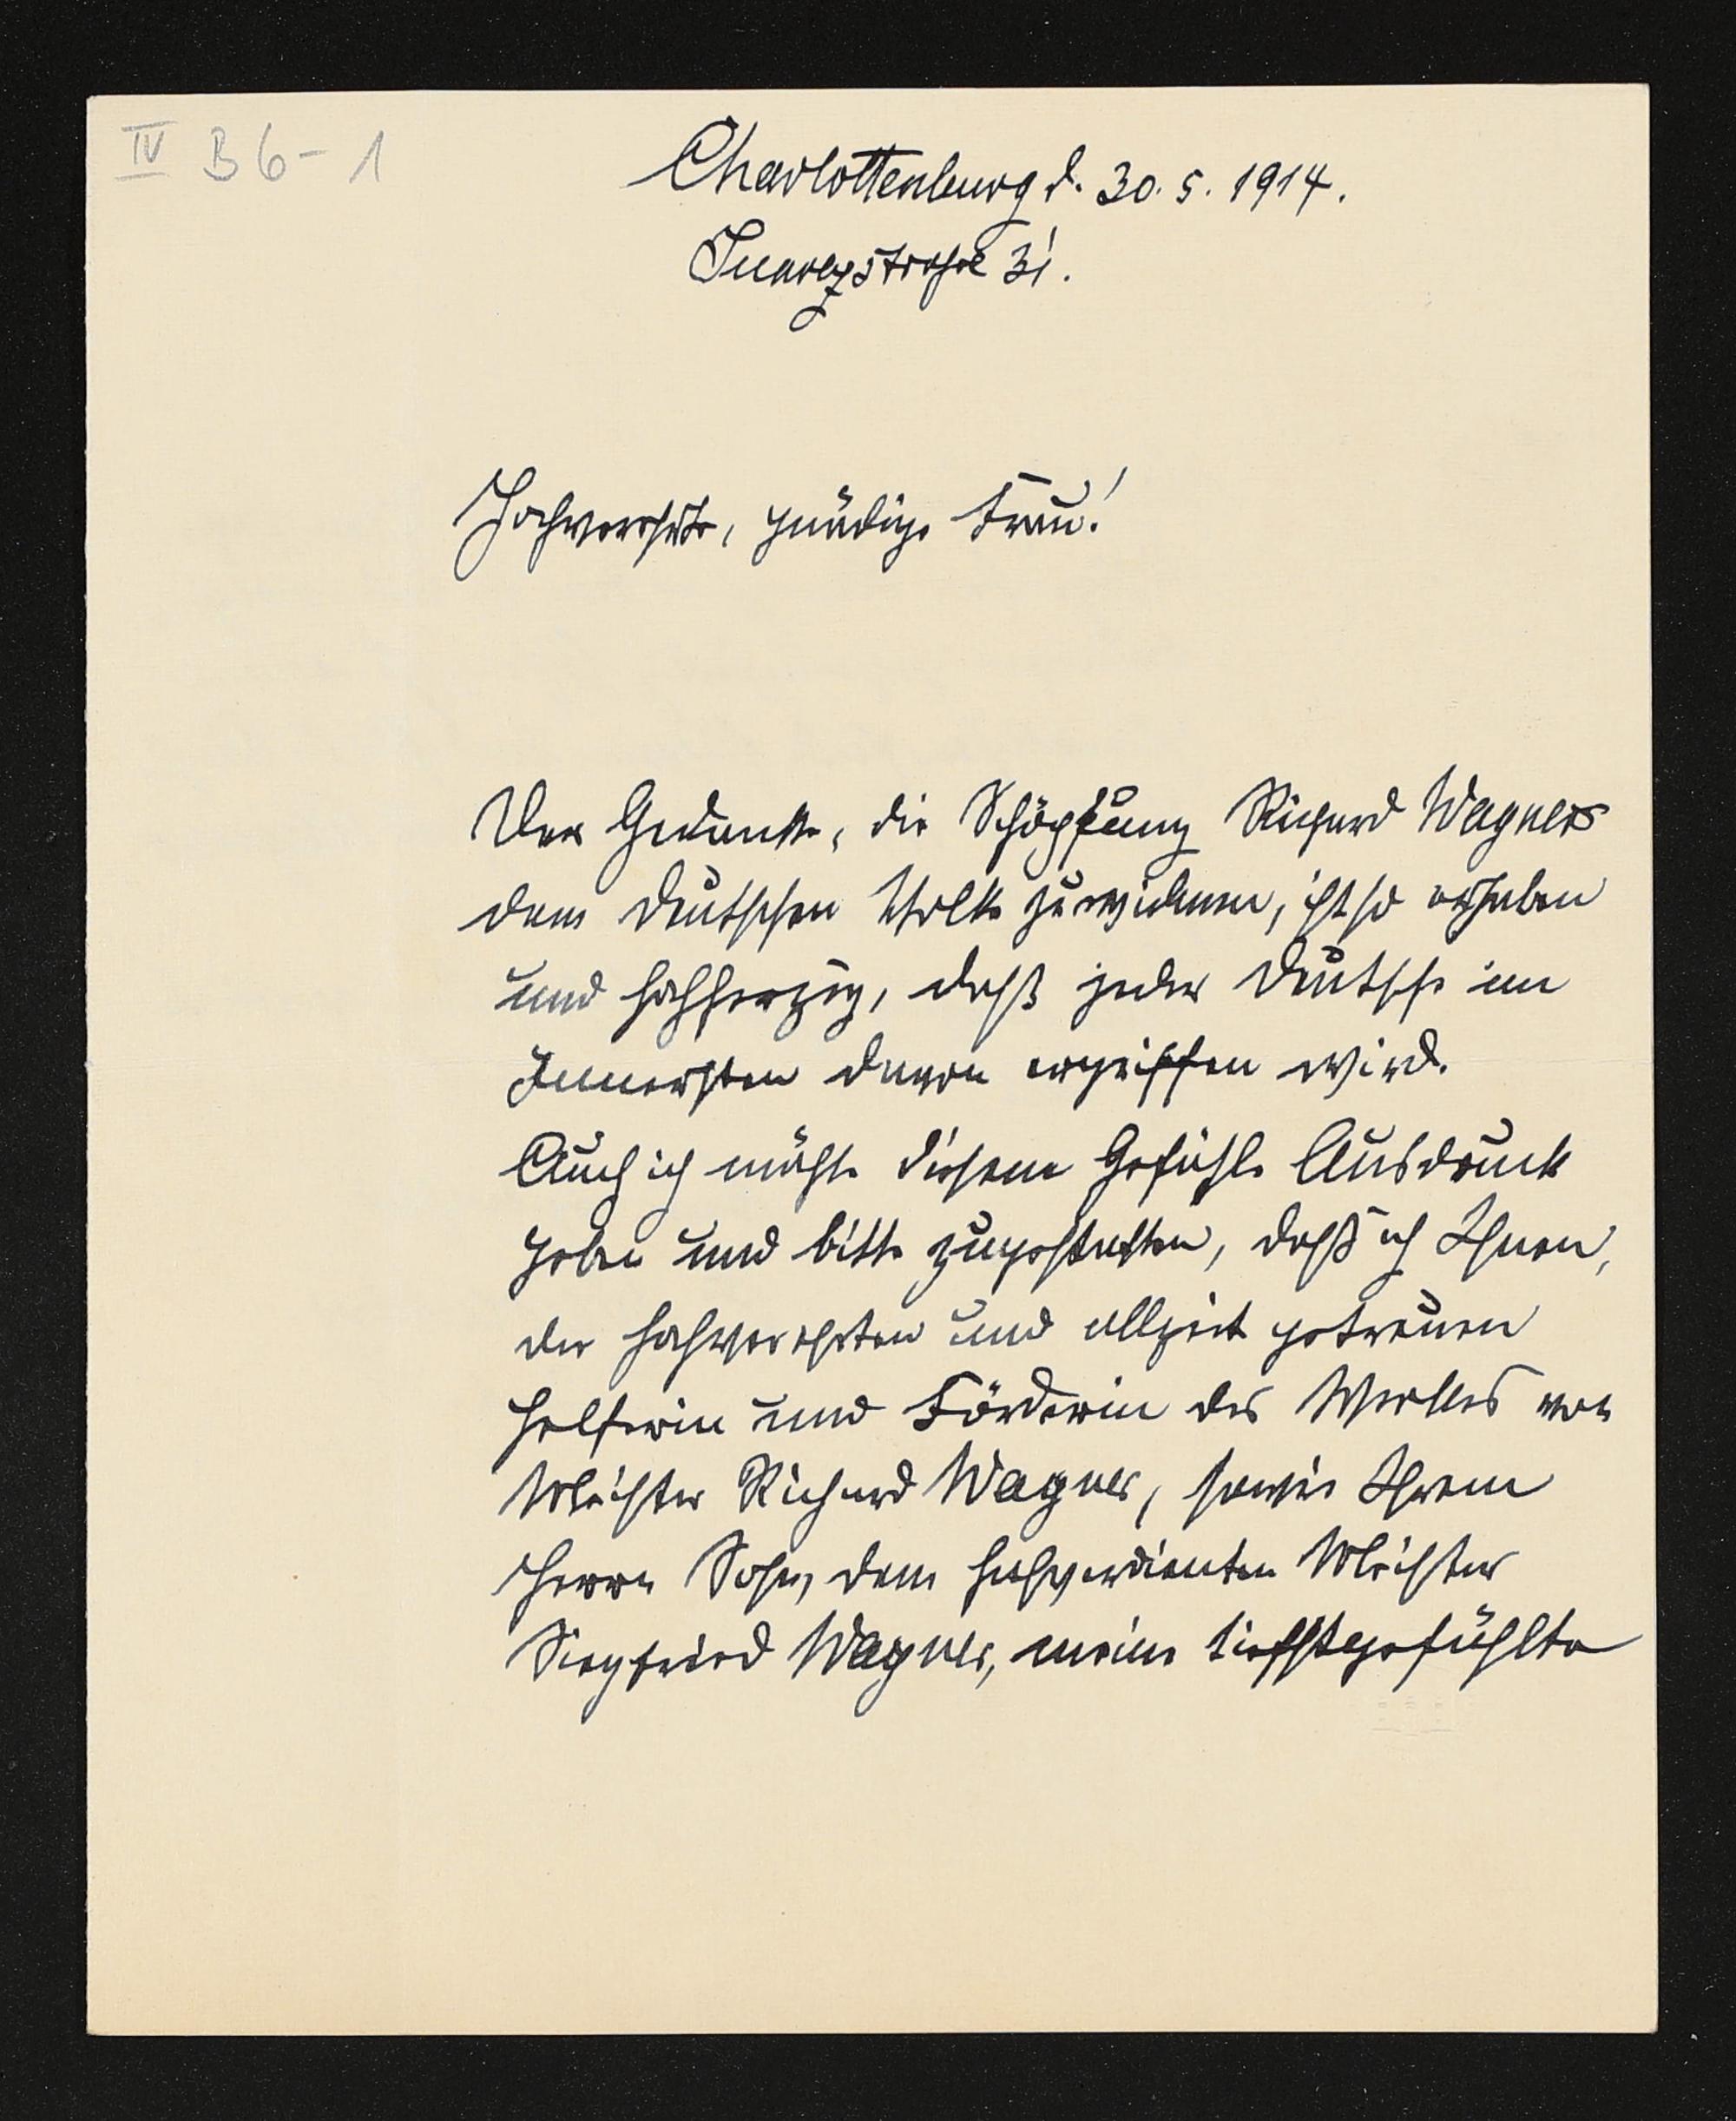 IV B 6 - 1
Charlottenburg d. 30. 5. 1914.
Suarezstrasse 31.
Hochverehrte, gnädige Frau!
Der Gedanke, die Schöpfung Richard Wagners
dem deutschen Volke zu widmen, ist so erhaben
und hochherzig, daß jeder Deutsche im
Innersten davon ergriffen wird.
Auch ich möchte diesem Gefühle Ausdruck
geben und bitte zu gestatten, daß ich Ihnen,
der hochverehrten und allzeit getreuen
Helferin und Förderin des Werkes von
Meister Richard Wagner, sowie Ihrem
Herrn Sohn, dem hochverdienten Meister
Siegfried Wagner, meine tiefstgefühlte